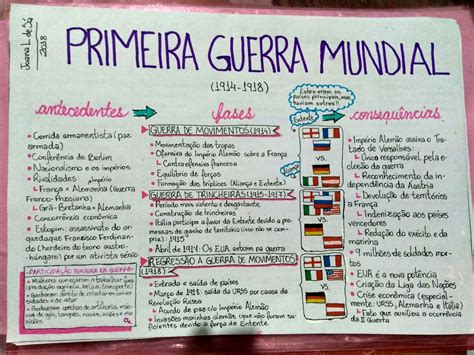 Joana L. de Sá
2018
PRIMEIRA GUERRA MUNDIAL
(1914-1918)
antecedentes
• Corrida armamentista (paz
armada)
• Conferência de Berlim
• Nacionalismo e os impérios
• Rivalidades: Império
↳ França × Alemanha (Guerra
Franco-Prussiana)
↳ Grã-Bretanha × Alemanha
• Concorrência econômica
• Estopim: assassinato do ar-
quiduque Franzisco Ferdinan-
de (herdeiro do trono austro-
húngaro) por um ativista sérvio
PARTICIPAÇÃO FEMININA NA GUERRA:
• Mulheres começaram a trabalhar fora
fases
GUERRA DE MOVIMENTOS (1914)
• Movimentação das tropas
• Ofensiva do Império Alemão sobre a França
• Contraofensiva francesa
• Equilíbrio de forças
• Formação das tríplices (Aliança e Entente)
GUERRA DE TRINCHEIRAS (1915-1917)
• Período mais violento e desgastante
• Construção de trincheiras
• Itália participa a favor da Entente devido a pro-
messas de ganho de território (não se
envolvera até 1915)
• Abril de 1914: Os EUA entram na guerra
REGRESSÃO A GUERRA DE MOVIMENTOS
(1918)
• Entrada e saída de países
• Março de 1918: saída da URSS por causa da
Revolução Russa
↳ Acordo de paz c/o Império Alemão
• Invasões marinhas alemãs (que não foram su-
ficientes devido a força da Entente)
Estes eram os
países principais, mas
haviam outros!!
Entente
Aliança
vs.
vs.
vs.
consequências
• Império Alemão assina o Tra-
tado de Versalhes:
↳ Único responsável pela e-
closão da guerra
↳ Reconhecimento da in-
dependência da Áustria
↳ Devolução de territórios
a França
↳ Indenização aos países
vencedores
↳ Redução do exército e da
marinha
• 9 milhões de soldados mor-
tos
• EUA é a nova potência
• Criação da Liga das Nações
• Crise econômica (especial-
mente: URSS, Alemanha e Itália)
↳ Fato que auxiliou a ocorrência
da II Guerra